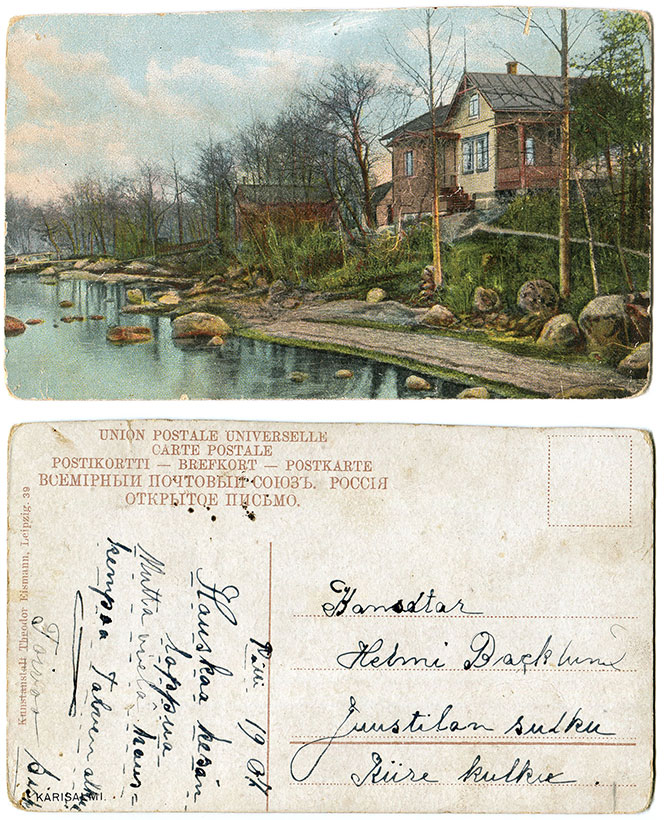 UNION POSTALE UNIVERSELLE
CARTE POSTALE
POSTIKORTTI — BREFKORT — POSTKARTE
ВСЕМІРНЫЙ ПОЧТОВЫЙ СОЮЗЪ. РОССІЯ
ОТКРЫТОЕ ПИСЬМО.
Kunstanstalt Theodor Eismann, Leipzig. 39
19 07
Hauskaa kesän
loppua
Mutta vielä haus-
kempaa Talven alkua
Toivoo
Helmi Backlund
Juustilan sulku
KÄRISALMI.